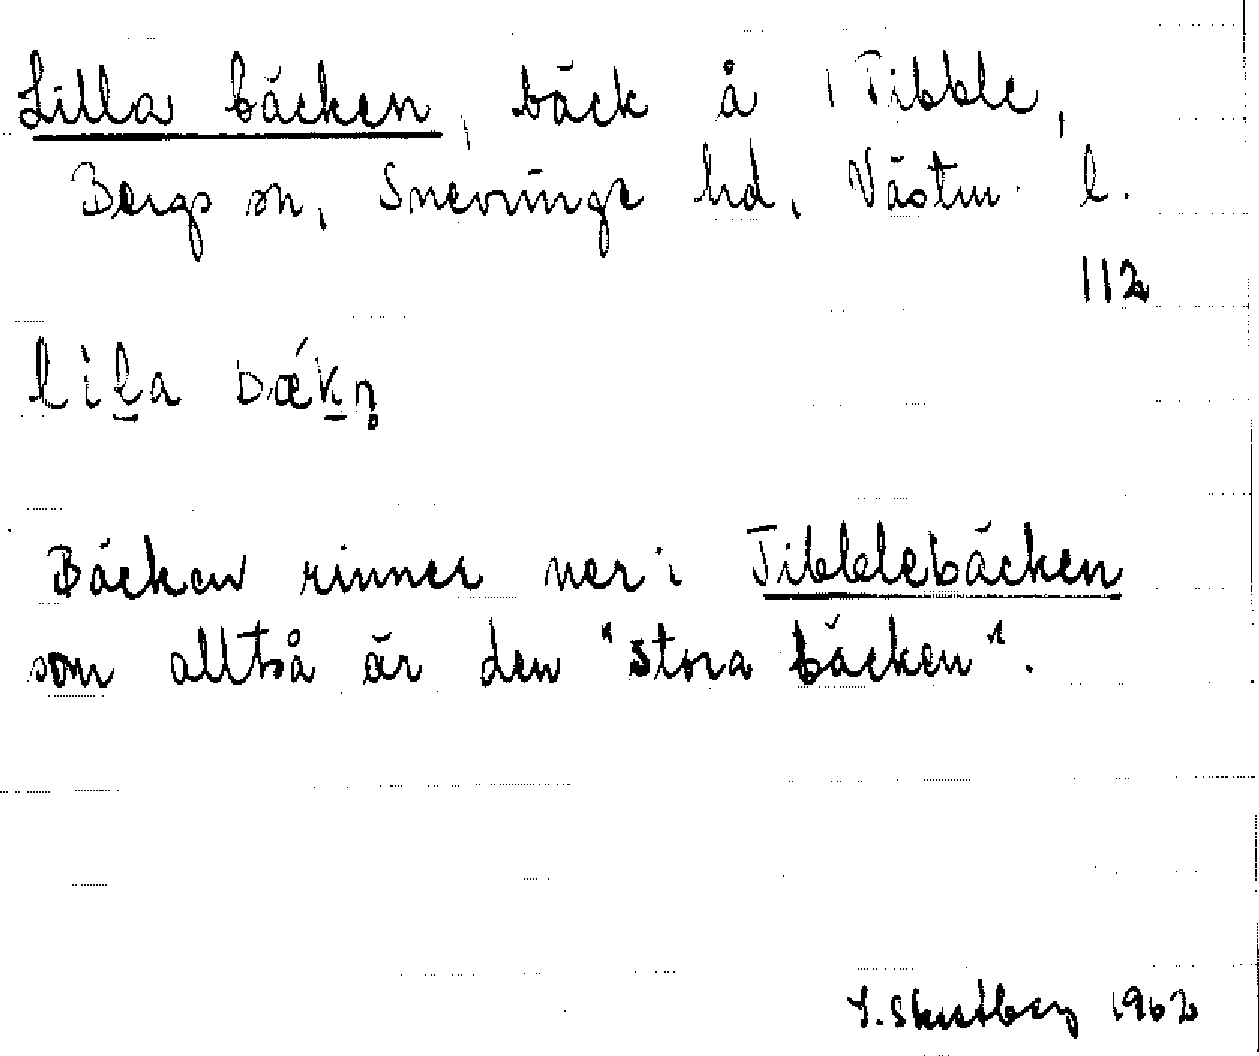 Lilla bäcken, bäck å Tibble,
Bergs sn, Snevringe hd, Västm. l.
112
lìla bǽkn̥
Bäcken rinner ner i Tibblebäcken
som alltså är den "stora bäcken".
1962